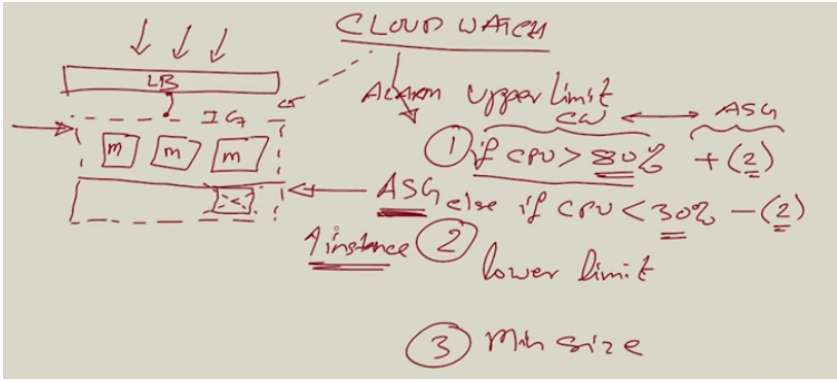 CLOUD WATCH
LB
IG
m m m
ALARM Upper Limit
CW ASG
① if CPU > 80% + (2)
ASG else if CPU < 30% - (2)
1 instance ② lower limit
③ Min size